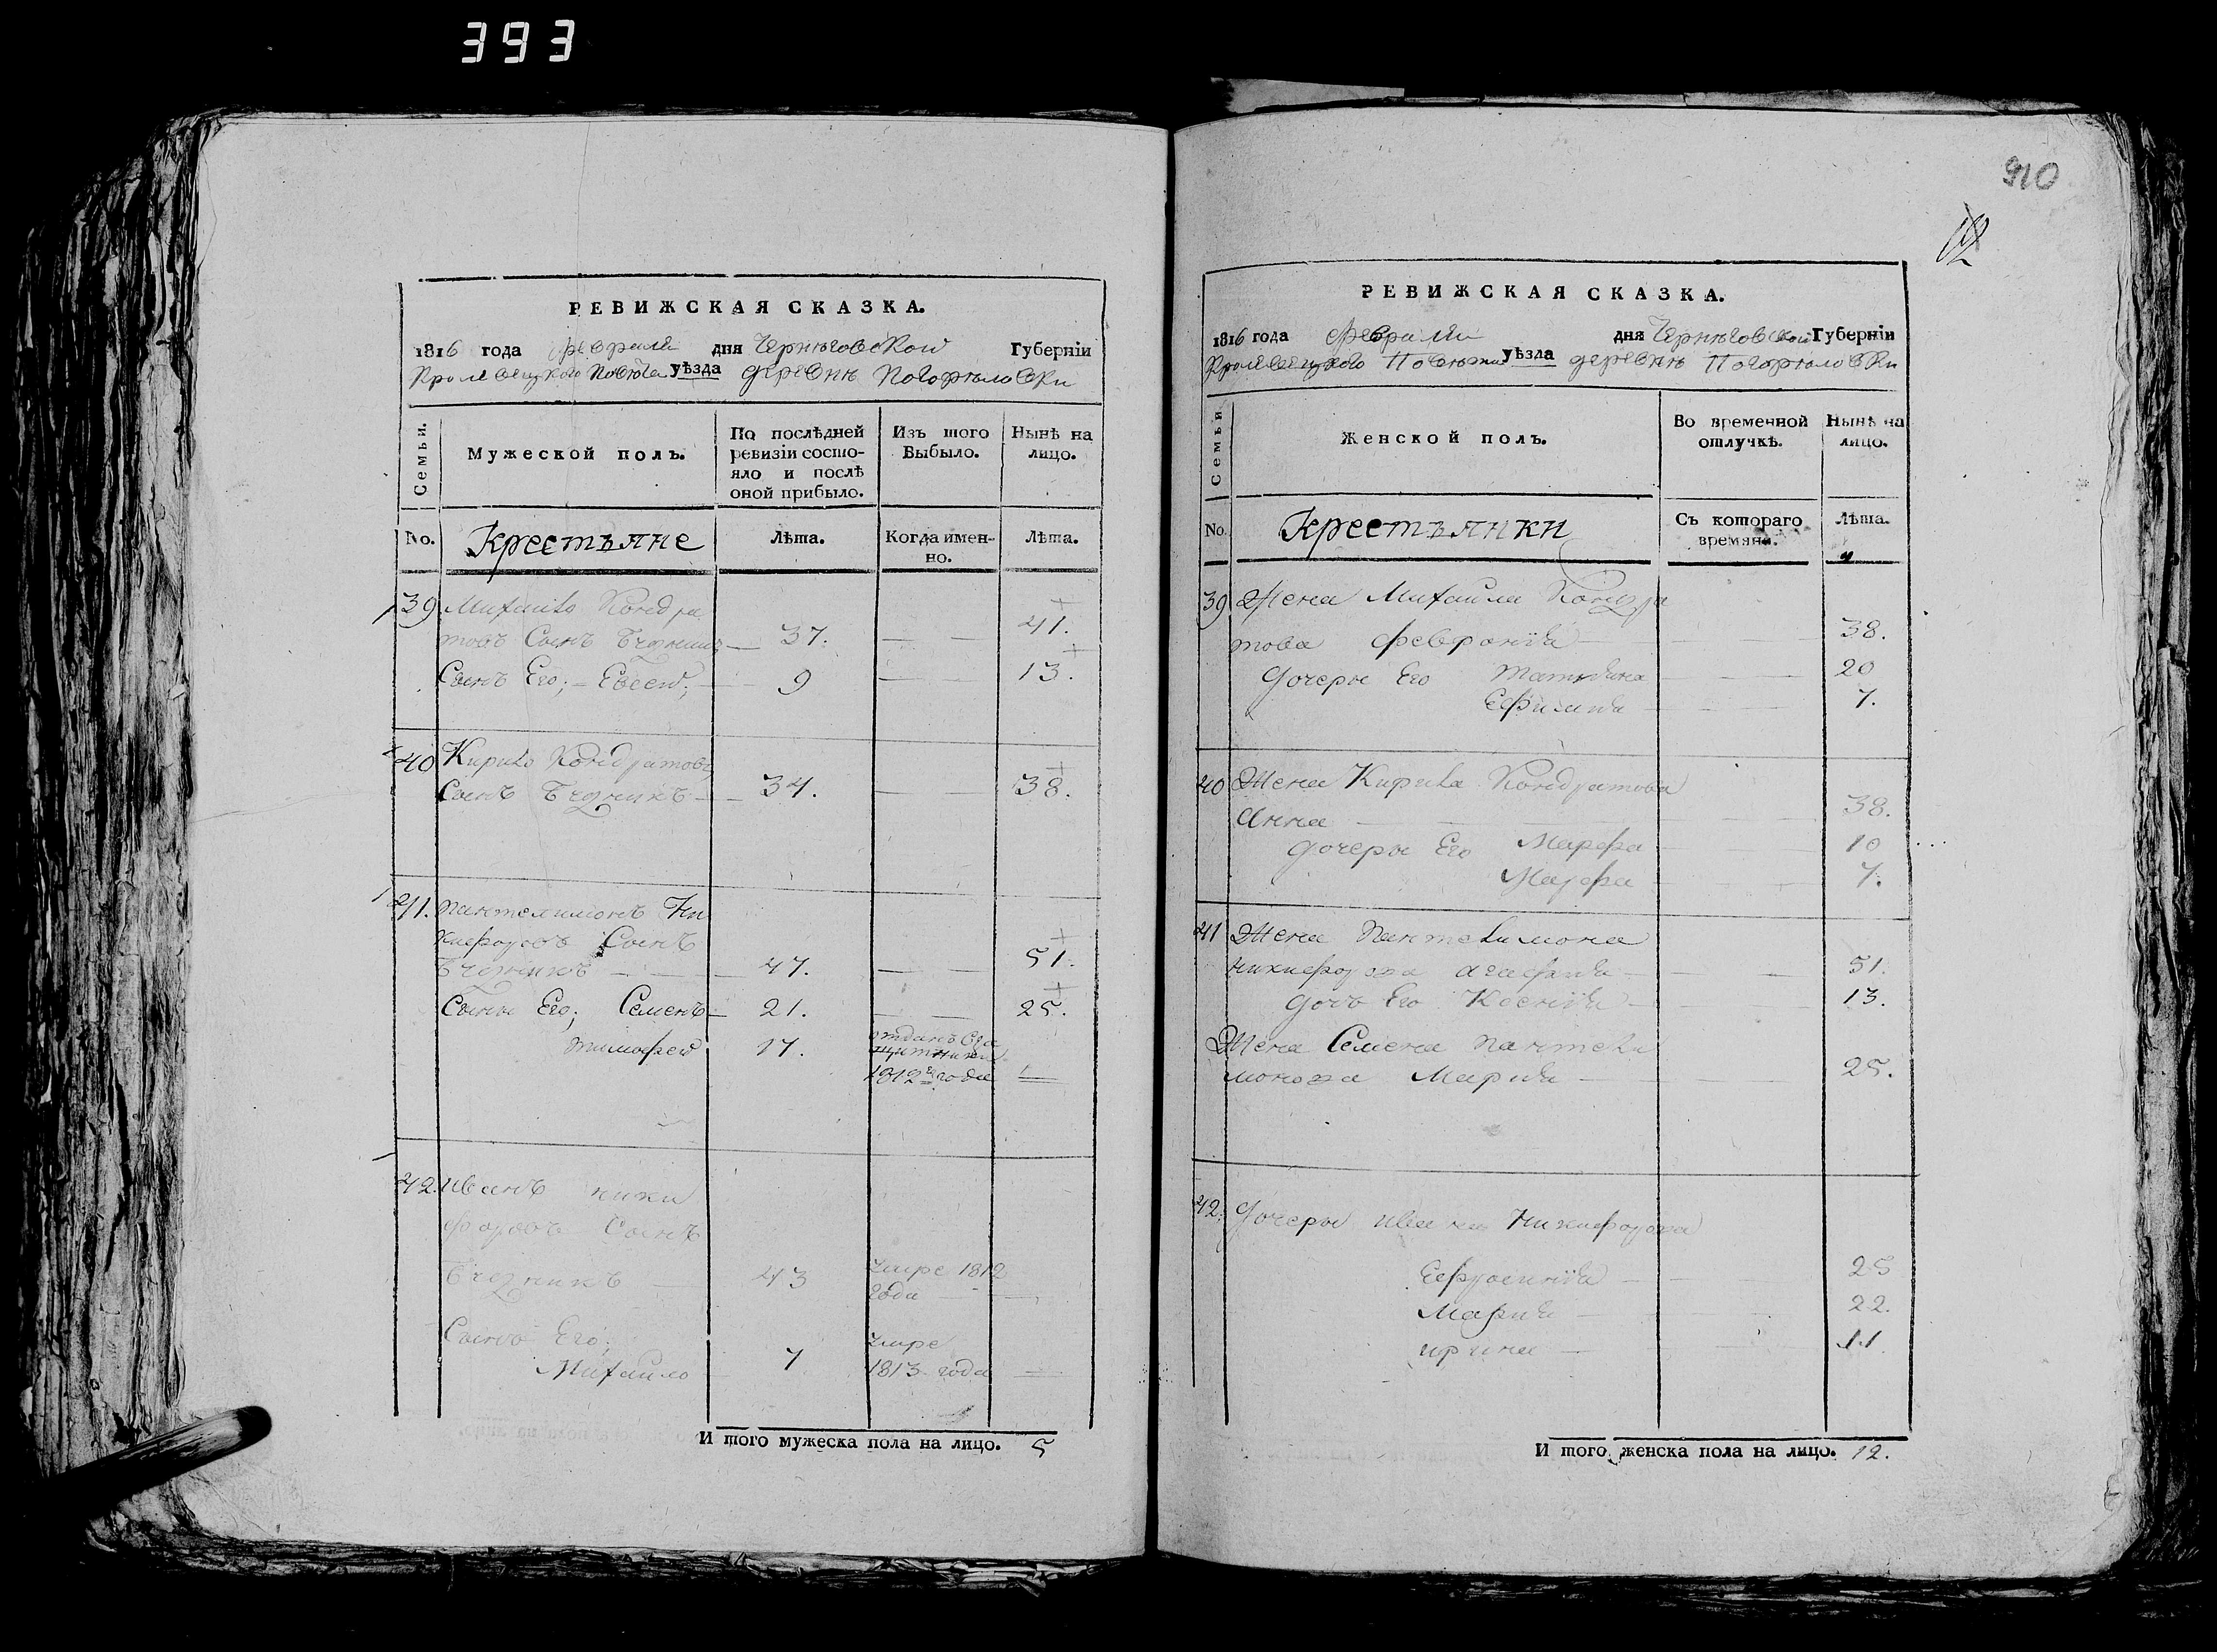 393
РЕВИЖСКАЯ СКАЗКА.
1816 года февраля дня Черниговской Губернїи
Кролевецкого Повета уѣзда деревнѣ Погорѣловки
Семьи.
Мужеской полъ.
По послѣдней ревизїи состо-
яло и послѣ
оной прибыло.
Изъ того
Выбыло.
Нынѣ на
лицо.
No. Крестъяне Лѣта. Когда имен-
но. Лѣта.
39 Михайло Кондра
товъ Сынъ 37. — — 41.
Сынъ Его; Евсей; 9 — — 13.
40 Кирило Кондратовъ
Сынъ 34. — — 38.
41. Пантелимонъ Ни
кифоровъ Сынъ
47. — — 51.
Сыны Его; Семенъ 21. — — 25.
тимофей 17. отданъ
1812 года
42. Иванъ ники
форовъ Сынъ
43 умре 1812
года
Сынъ Его;
Михайло 7 умре
1813 года
И того мужеска пола на лицо. 5
910
12
РЕВИЖСКАЯ СКАЗКА.
1816 года февраля дня Черниговской Губернїи
Кролевецкого Повета уѣзда деревнѣ Погорѣловки
Семья
Женской полъ.
Во временной
отлучкѣ.
Нынѣ на
лицо.
No. Крестъянки Съ котораго
времяни. Лѣта.
39 Жена Михайла Кондра
това Феврония 38.
дочеры Его татияна 20
Ефимия 7.
40 Жена Кирила Кондратова
Анна 38.
дочеры Его Марфа 10
Марфа 7.
41 Жена Пантелимона
никифорова агафия 51.
дочь Его Ксения 13.
Жена Семена пантели
монова Мария 25.
42. дочеры ивана Никифорова
Ефросиния 25
Мария 22.
ирина 11.
И того женска пола на лицо. 12.